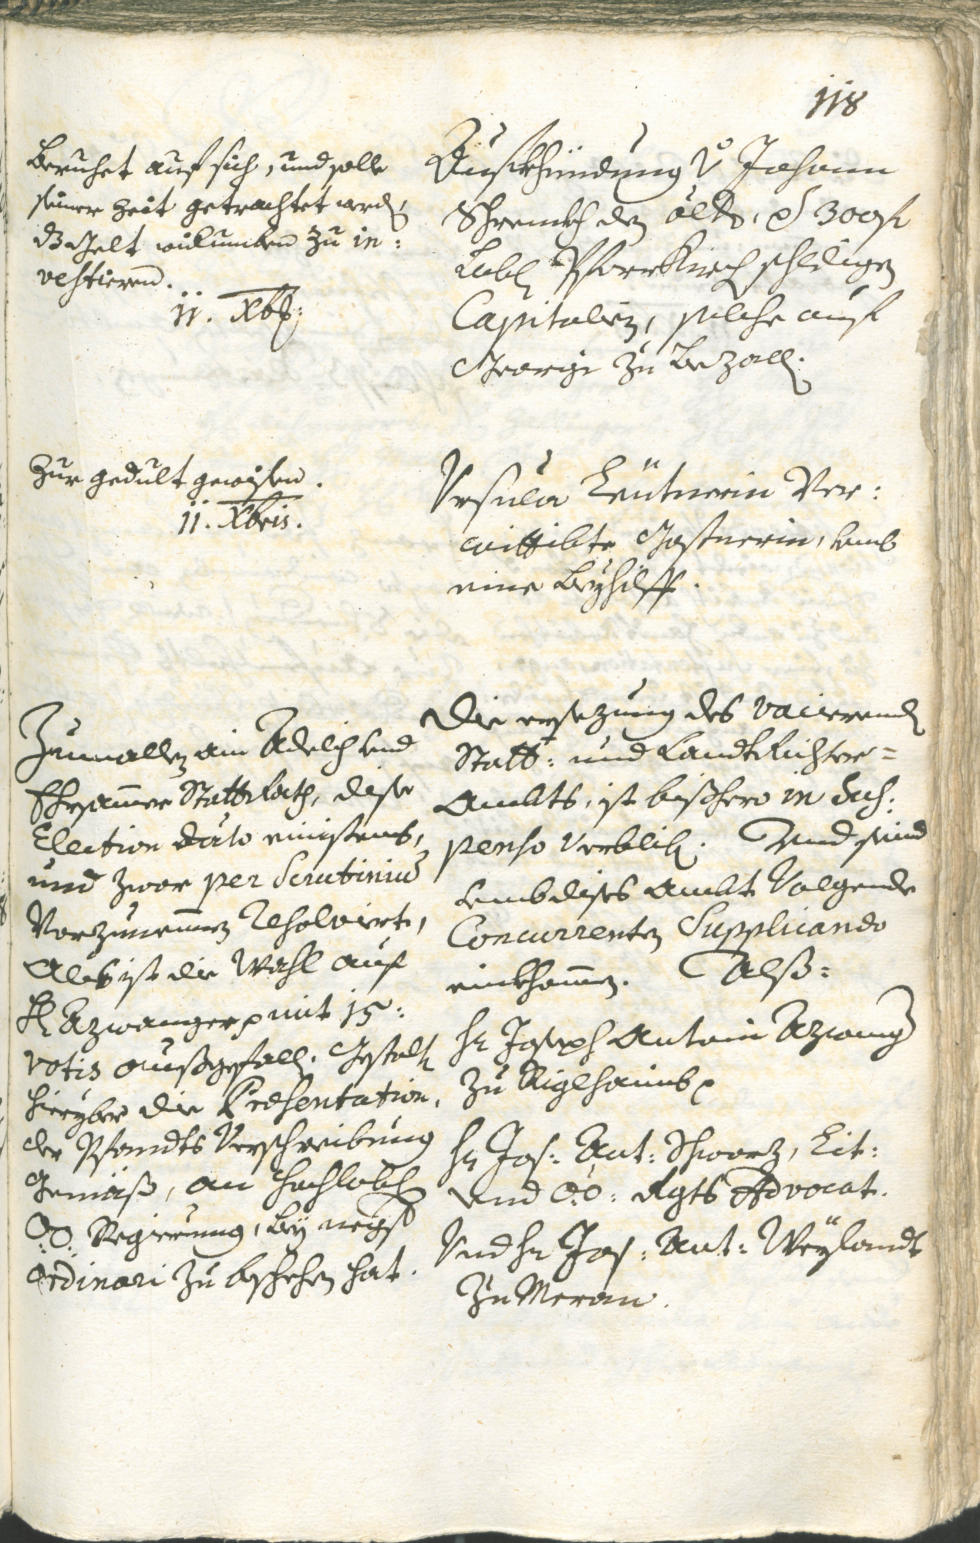 118
Beruhet auf sich, und solle
seiner Zeit getrachtet werd,
dz Gelt widumben zu in=
vestieren.
11. Xbr:
Aufkhündung v Johann
Schrenkh den ölt. p 300 f
Lobl Pfarrkirch schldigen
Capitalien, solche auf
Georgi zu bezall.
Zur gedult gewisen.
11. Xbris.
Ursula Leütnerin Ver=
wittibte Gostnerin, umb
eine Beyhilff.
Zumallen ain Adelich und
Ehrsamer Statt Rath, dise
Election dato einistens,
und zwar per Scrutinium
Vorzunemen Resolviert,
Als ist die Wahl auf
H Azwanger p mit 15:
votis außgefall. Gestalt
hieryber die Præsentation,
der Pfandts Verschreibung
Gemäß, an Hochlobl
O:Ö: Regierung, bey negst
ordinari zu bschehen hat.
Die ersezung des vacierend
Statt: und Landt Richter=
Ambts, ist bißhero in Sus=
penso verblib. Und seind
umb dises Ambt Volgende
Concurrenten Supplicando
einkhomen. Alß:
Hr Joseph Antoni Azwang
zu Riglhaimb p
Hr Jos: Ant: Schwarz, Lit:
und O:Ö: Rgts Advocat.
Und Hr Jos: Ant: Weylandt
zu Meran.